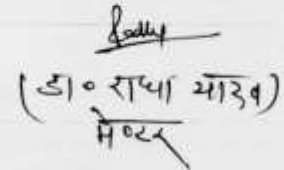 (डा० राधा यादव)
मेम्बर